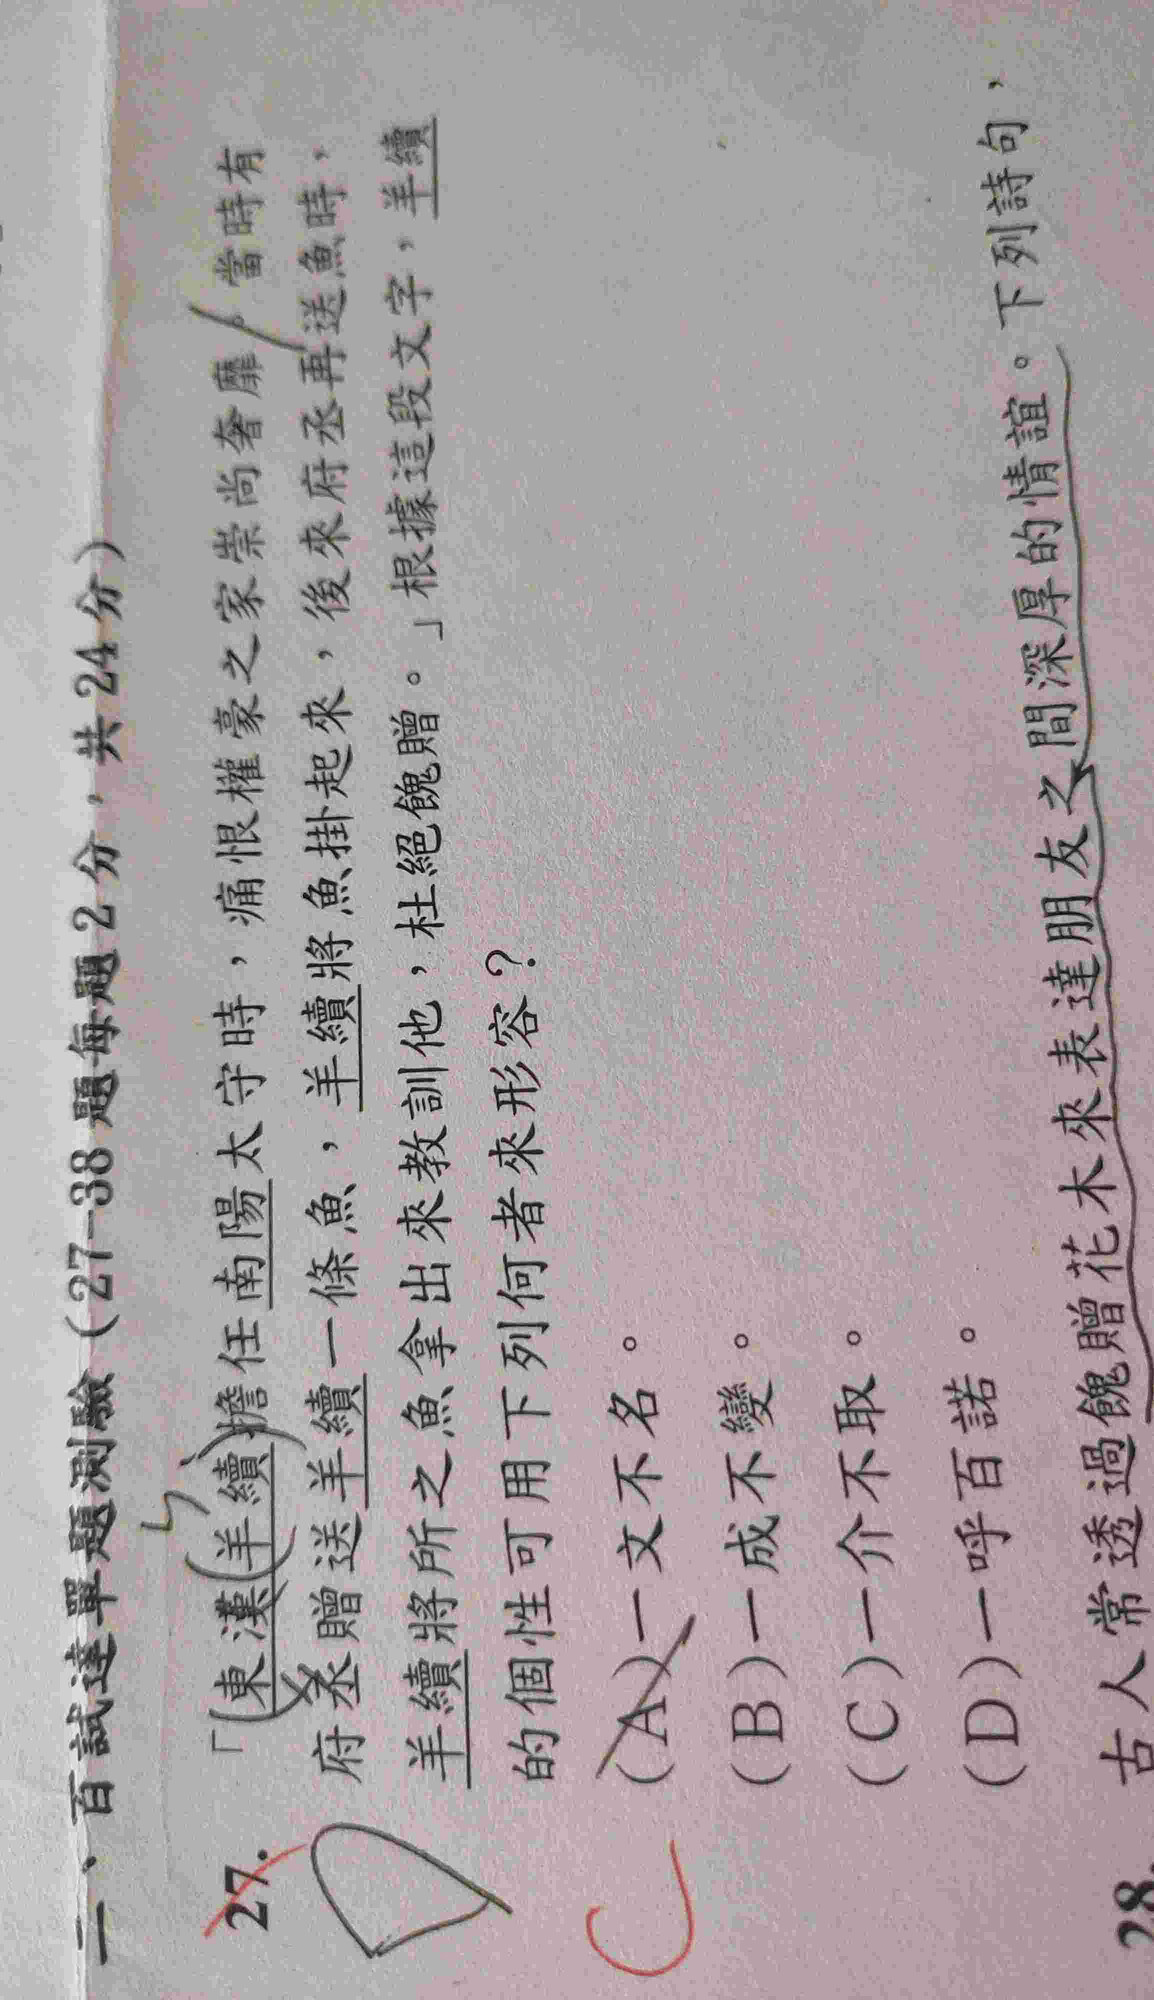 二、百試達單題測驗(27-38題每題2分,共24分)
27.「東漢羊續擔任南陽太守時,痛恨權豪之家崇尚奢靡。當時有
府丞贈送羊續一條魚,羊續將魚掛起來,後來府丞再送魚時,
羊續將所之魚拿出來教訓他,杜絕餽贈。」根據這段文字,羊續
的個性可用下列何者來形容?
D
C
(A)一文不名。
(B)一成不變。
(C)一介不取。
(D)一呼百諾。
28.古人常透過餽贈花木來表達朋友之間深厚的情誼。下列詩句,